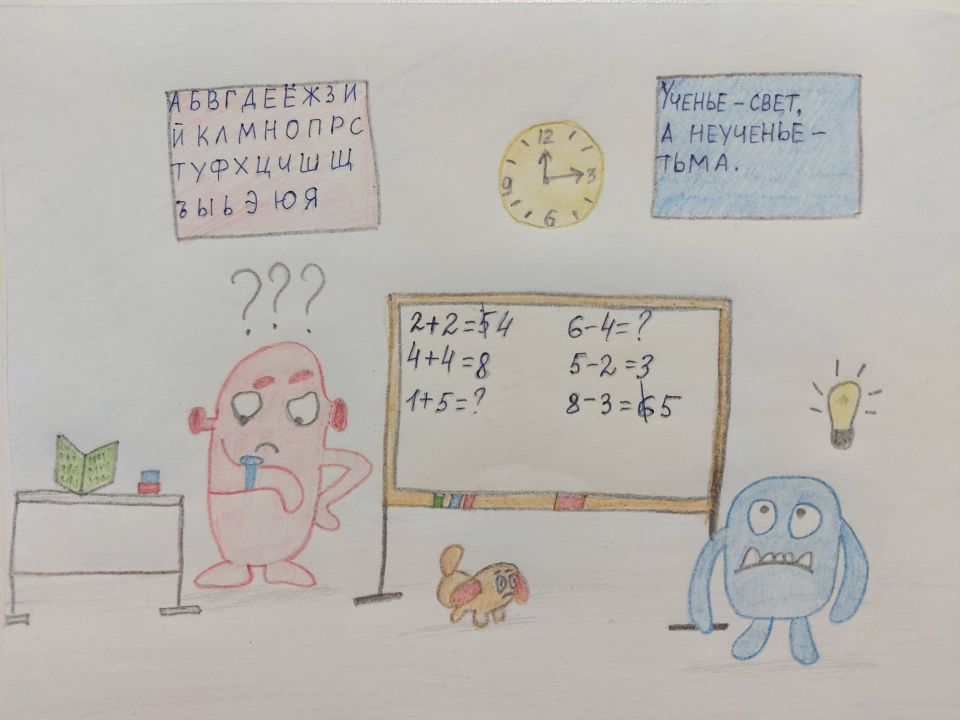 АБВГДЕЁЖЗИ
ЙКЛМНОПРС
ТУФХЦЧШЩ
ЪЫЬЭЮЯ
12
3
6
9
УЧЕНЬЕ – СВЕТ,
А НЕУЧЕНЬЕ –
ТЬМА.
???
2+2=5 4
4+4=8
1+5=?
6–4=?
5–2=3
8–3=6 5